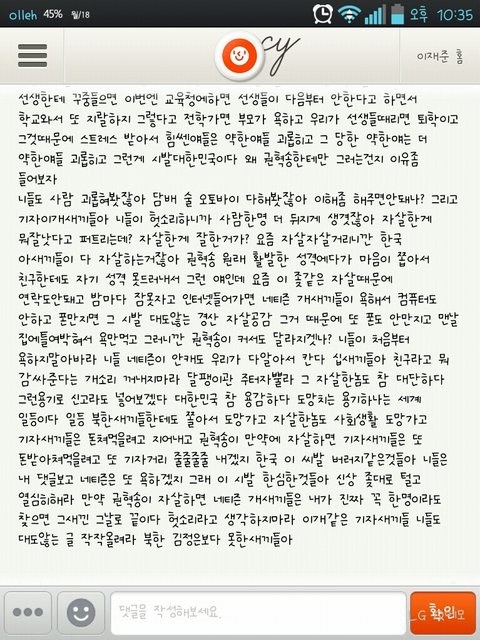 olleh 45% 월/18 오후 10:35
cy 이재준 홈
선생한테 꾸중들으면 이번엔 교육청에하면 선생들이 다음부터 안한다고 하면서
학교와서 또 지랄하지 그렇다고 전학가면 부모가 욕하고 우리가 선생들때리면 퇴학이고
그것때문에 스트레스 받아서 힘쎈얘들은 약한얘들 괴롭히고 그 당한 약한얘는 더
약한얘들 괴롭히고 그런게 시발대한민국이다 왜 권혁송한테만 그러는건지 이유좀
들어보자
니들도 사람 괴롭혀봣잖아 담배 술 오토바이 다해봣잖아 이해좀 해주면안돼나? 그리고
기자이개새끼들아 니들이 헛소리하니까 사람한명 더 뒤지게 생겻잖아 자살한게
뭐잘낫다고 퍼트리는데? 자살한게 잘한거가? 요즘 자살자살거리니깐 한국
아새끼들이 다 자살하는거잖아 권혁송 원래 활발한 성격에다가 마음이 쫍아서
친구한테도 자기 성격 못드러내서 그런 얘인데 요즘 이 좆같은 자살때문에
연락도안돼고 밤마다 잠못자고 인터넷들어가면 네티즌 개새끼들이 욕해서 컴퓨터도
안하고 폰만지면 그 시발 대도않는 경산 자살공감 그거 때문에 또 폰도 안만지고 맨날
집에틀여박혀서 욕만먹고 그러니깐 권혁송이 커서도 달라지겟나? 니들이 처음부터
욕하지말아바라 니들 네티즌이 안캐도 우리가 다알아서 칸다 십새끼들아 친구라고 뭐
감싸준다는 개소리 꺼내지마라 달팽이관 주터자뿔라 그 자살한놈도 참 대단하다
그런용기로 신고라도 넣어보겠다 대한민국 참 용감하다 도망치는 용기하나는 세계
일등이다 일등 북한새끼들한테도 쫄아서 도망가고 자살한놈도 사회생활 도망가고
기자새끼들은 돈쳐먹을려고 지어내고 권혁송이 만약에 자살하면 기자새끼들은 또
돈받아쳐먹을려고 또 기자거리 줄줄줄줄 내겠지 한국 이 씨발 버러지같은것들아 니들은
내 댓글보고 네티즌은 또 욕하겠지 그래 이 시발 한심한것들아 신상 좆대로 털고
열심히해라 만약 권혁송이 자살하면 네티즌 개새끼들은 내가 진짜 꼭 한명이라도
찾으면 그새낀 그날로 끝이다 헛소리라고 생각하지마라 이개같은 기자새끼들 니들도
대도않는 글 작작올려라 북한 김정은보다 못한새끼들아
댓글을 작성해보세요. 확인